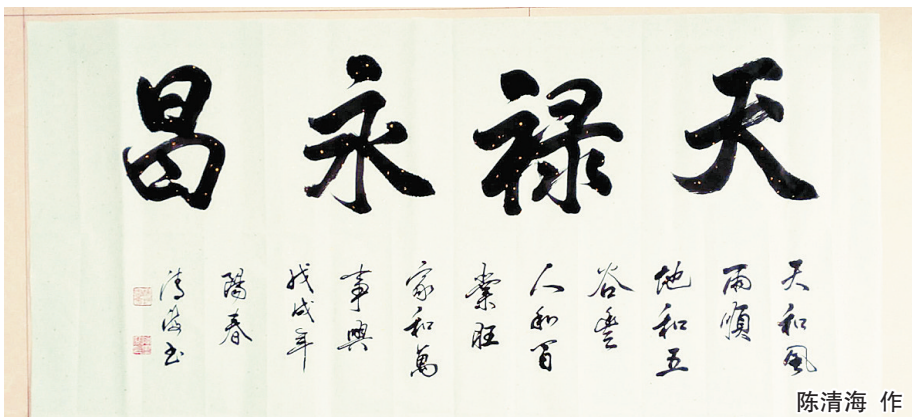 天禄永昌
天和風
雨順
地和五
谷豐
人和百
業旺
家和萬
事興
戊戌年
陽春
清海书
陈清海 作